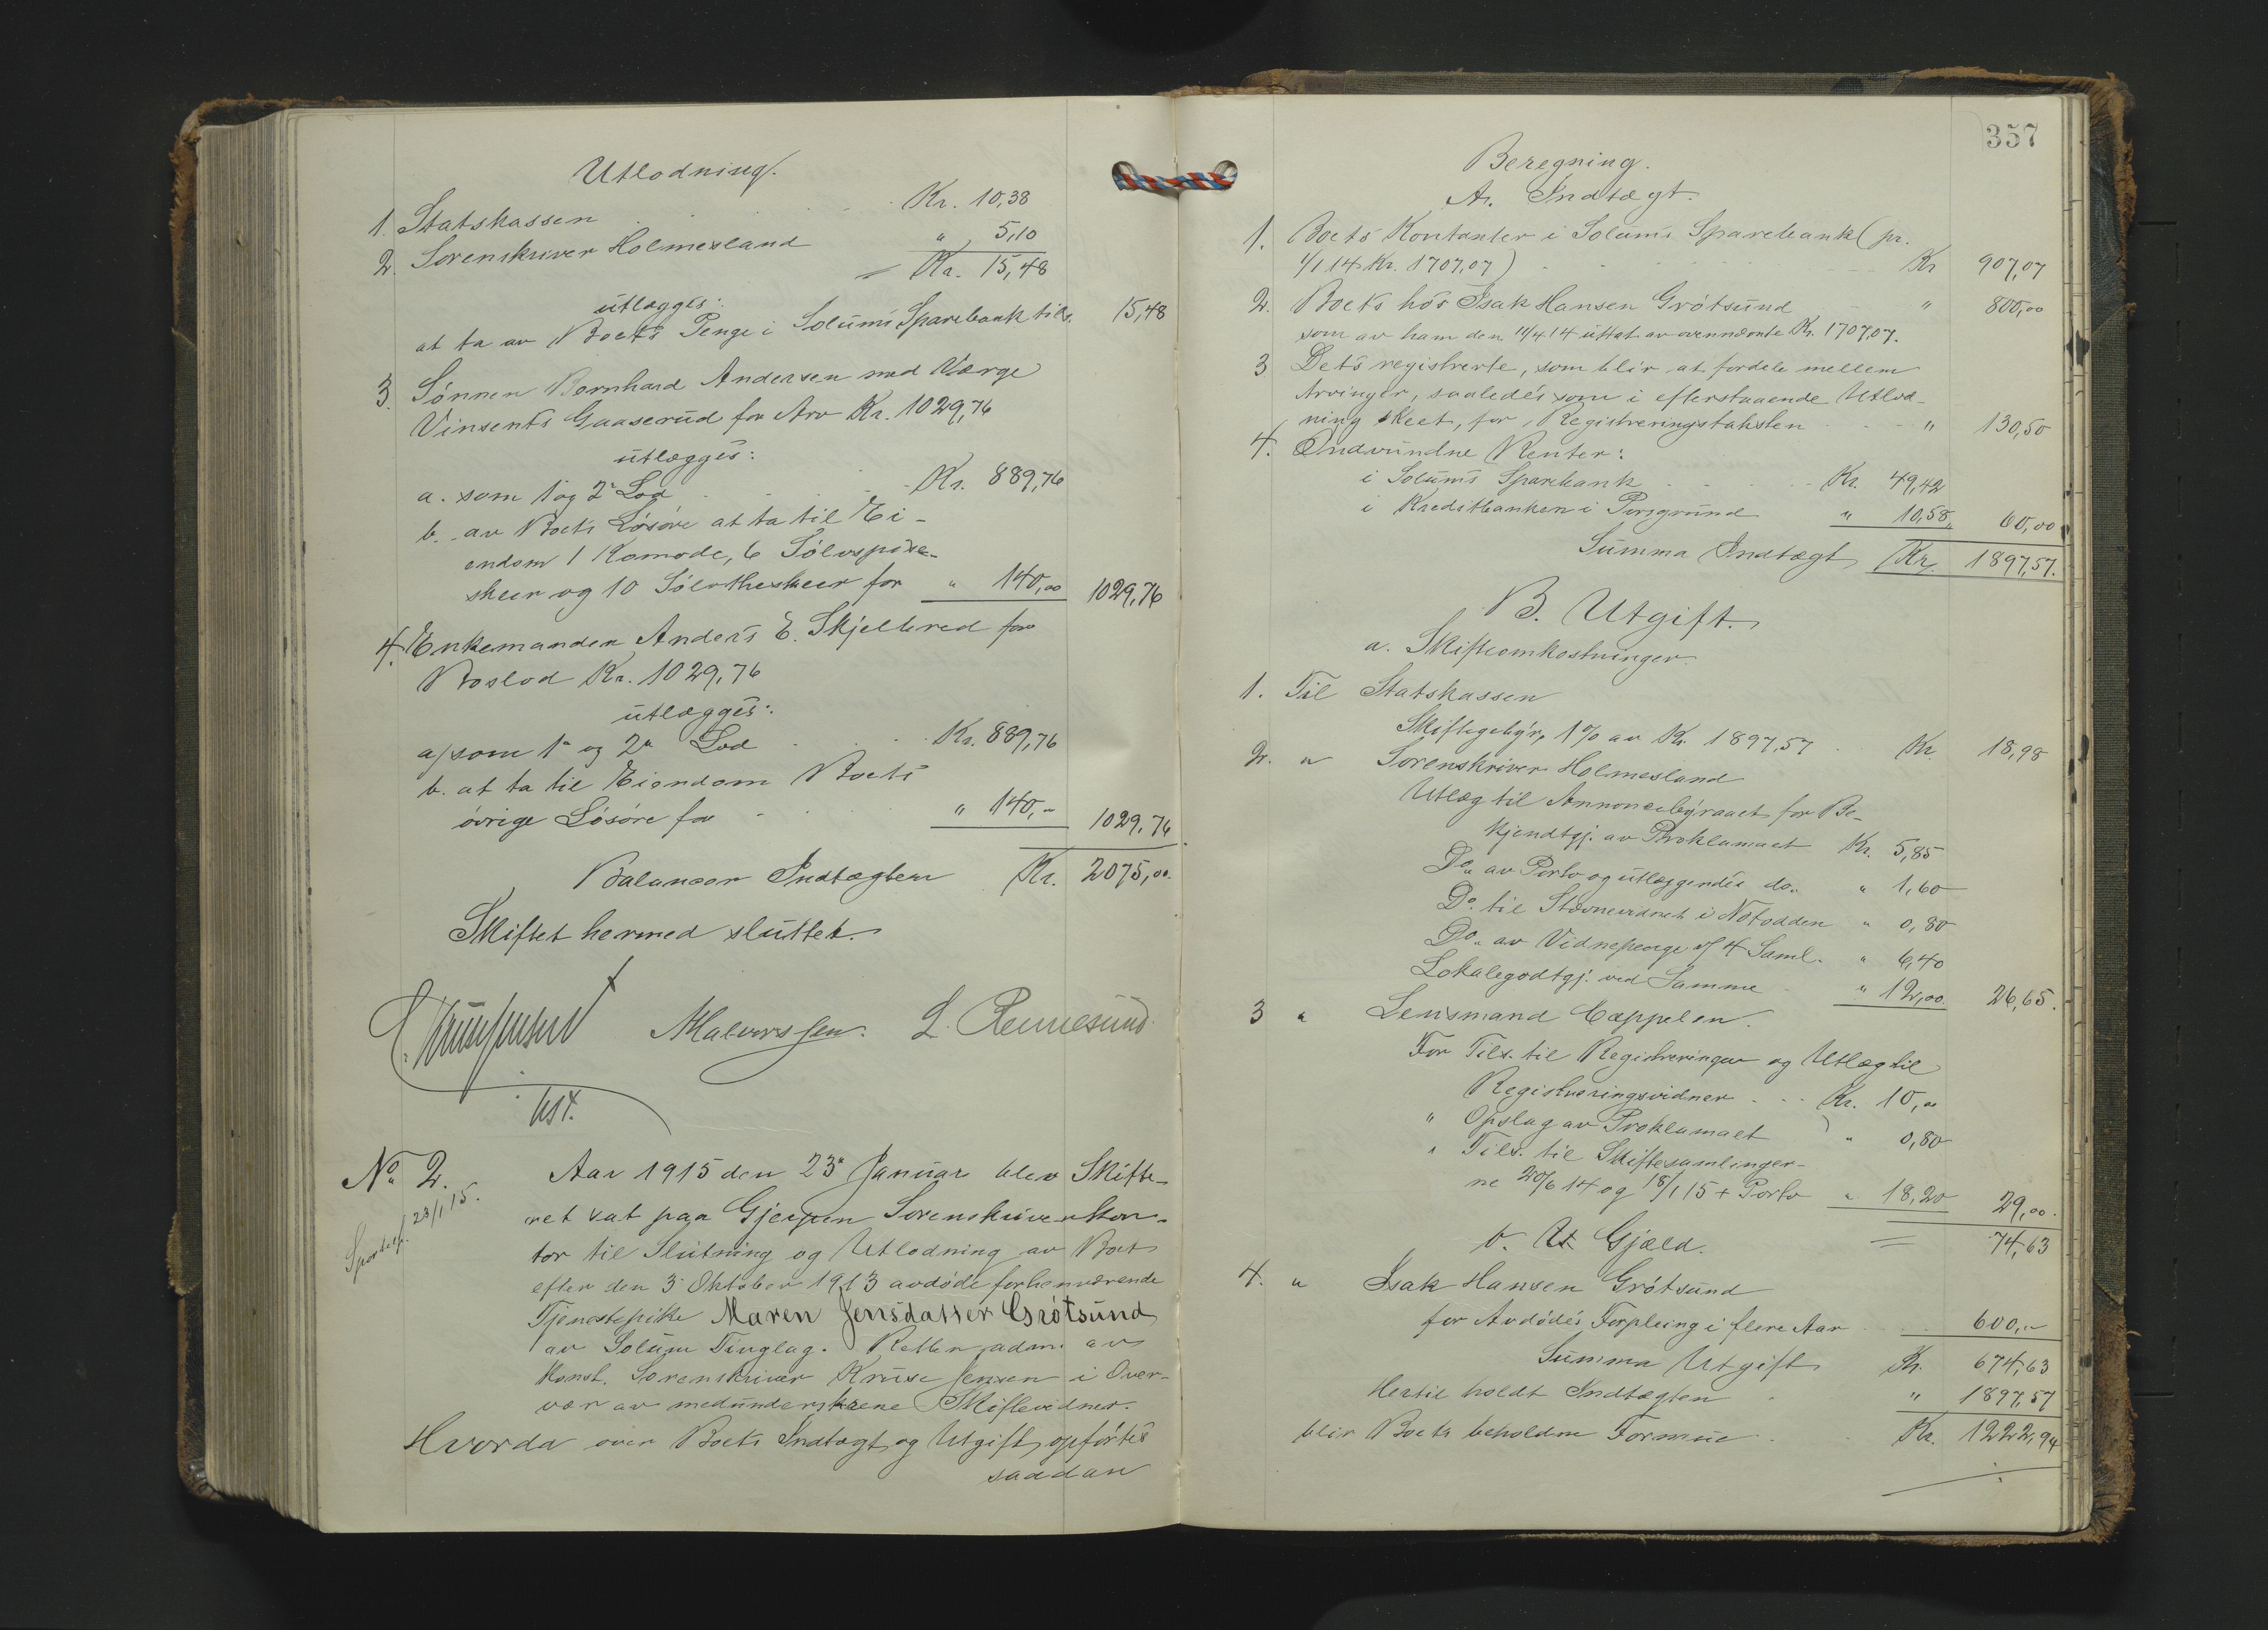 Utlodning.
1. Statskassen Kr. 10,38
2. Sorenskriver Holmesland " 5,10
= Kr. 15,48
utlægges:
at ta av Boets Penge i Solums Sparebank tils. 15,48
3. Sønnen Bernhard Andersen med Værge
Vinsents Gaaserud for Arv Kr. 1029,76
utlægges:
a. som 1 og 2 Lod Kr. 889,76
b. av Boets Løsøre at ta til Ei-
endom 1 Komode, 6 Sølvspise-
skeer og 10 Sølvtheskeer for " 140,00 1029,76
4. Enkemanden Anders E. Skjelbred for
Boslod Kr. 1029,76
utlægges:
a/ som 1ª og 2ª Lod Kr. 889,76
b. at ta til Eiendom Boets
øvrige Løsøre for " 140,- 1029,76
Balancer Indtægten Kr. 2075,00.
Skiftet hermed sluttet.
Kruse Jensen Halvorsen. L. Rennesund.
kst.
No 2. Aar 1915 den 23 Januar blev Skifte-
Sportelf. 23/1 15.
ret sat paa Gjerpen Sorenskriverkon-
tor til Slutning og Utlodning av Boet
efter den 3 Oktober 1913 avdøde forhenværende
Tjenestepike Maren Jensdatter Grøtsund
av Solum Tinglag. Retten adm. av
Konst. Sorenskriver Kruse Jensen i Over-
vær av medunderskrevne Skiftevidner.
Hvorda over Boets Indtægt og Utgift opførtes
saadan
357
Beregning.
A. Indtægt.
1. Boets Kontanter i Solums Sparebank (pr.
1/1 14 Kr. 1707,07) Kr 907,07
2. Boets hos Isak Hansen Grøtsund " 800,00
som av ham den 11/4 14 uttat av ovennævnte Kr. 1707,07.
3 Dets registrerte, som blir at fordele mellem
Arvinger, saaledes som i efterstaaende Utlod-
ning skeet, for Registreringstaksten " 130,50
4. Indvundne Renter:
i Solums Sparebank Kr. 49,42
i Kreditbanken i Porsgrund " 10,58 60,00
Summa Indtægt Kr. 1897,57.
B. Utgift.
a. Skifteomkostninger.
1. Til Statskassen
Skiftegebyr, 1% av Kr. 1897,57 Kr. 18,98
2. " Sorenskriver Holmesland
Utlæg til Annoncebyraaet for Be-
kjendtgj. av Proklamaet Kr. 5,85
Do. av Porto og utlæggendes do. " 1,60
Do. til Stævnevidnet i Notodden " 0,80
Do. av Vidnepenge v/ 4 Saml. " 6,40
Lokalegodtgj. ved Samme " 12,00 26,65.
3 " Lensmand Cappelen.
For Tils. til Registreringen og Utlæg til
Registreringsvidner Kr. 10,00
" Opslag av Proklamaet " 0,80
" Tils. til Skiftesamlinger-
ne 20/6 14 og 18/1 15 + Porto " 18,20 29,00.
b. Gjæld. = 74,63
4. " Isak Hansen Grøtsund
for Avdødes Forpleing i flere Aar 600,00
Summa Utgift Kr. 674,63
Hertil holdt Indtægten " 1897,57
blir Boets beholdne Formue Kr. 1222,94